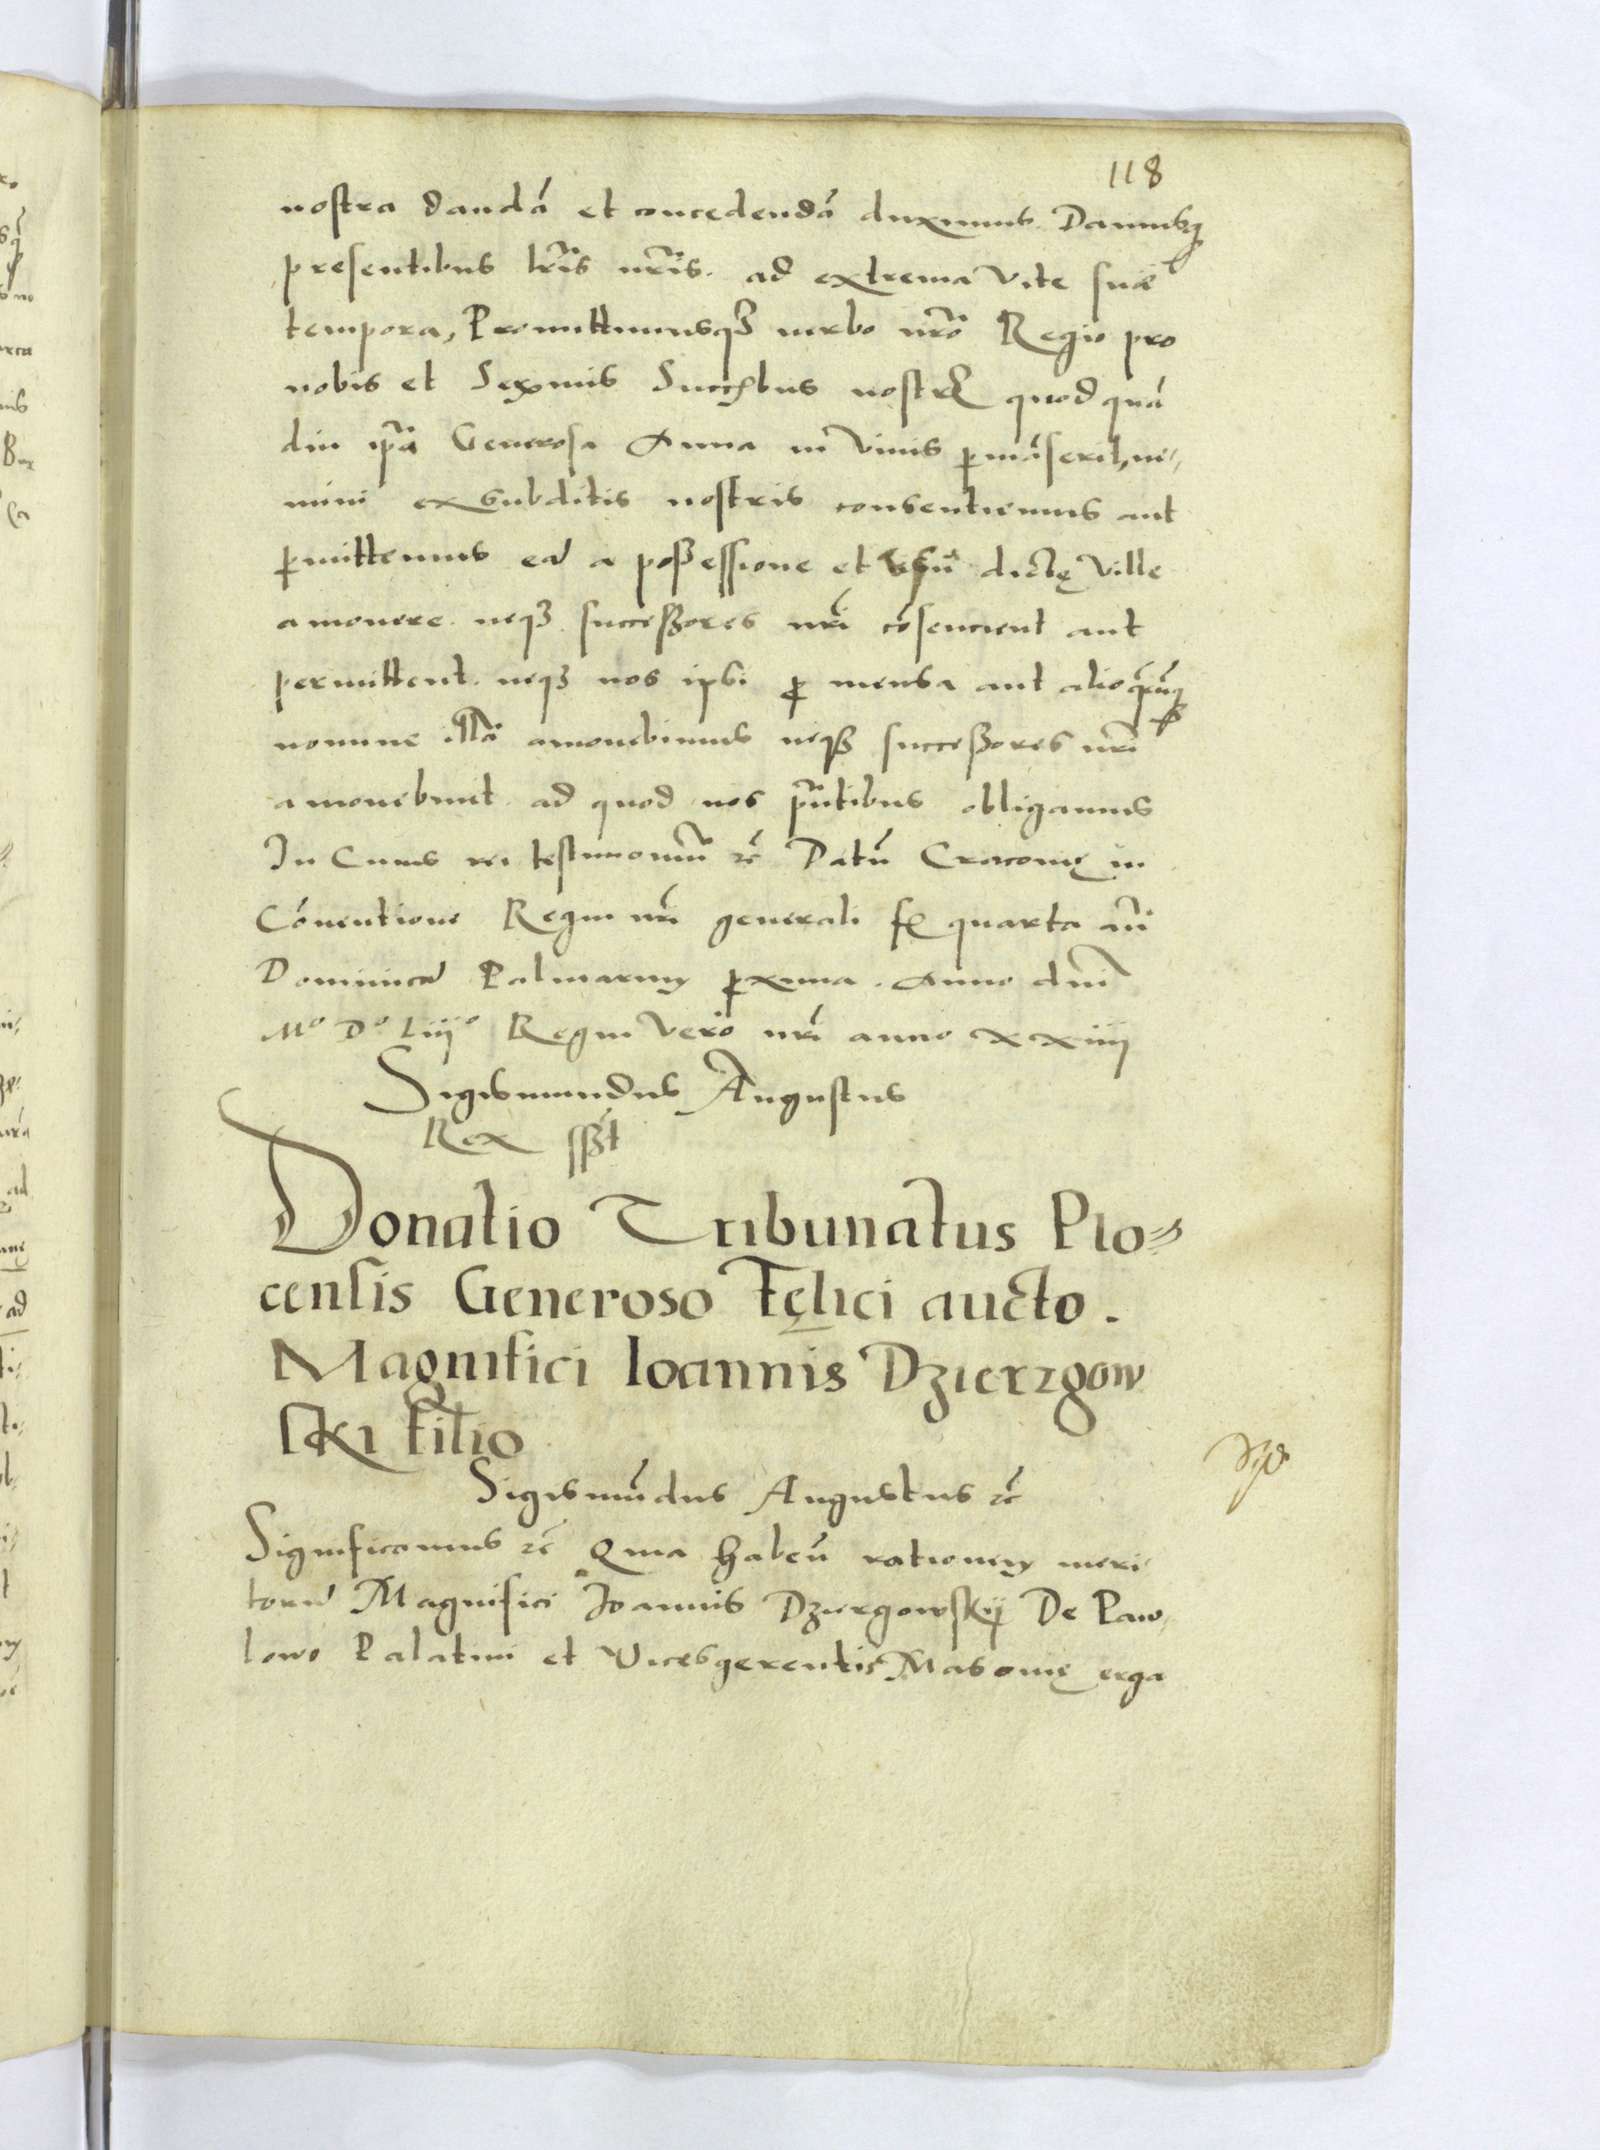 118
nostra dandā et concedendā duximus. Damusq3
presentibus lr̃is nr̃is. ad extrema Vite suæ
tempora, Promittimusq3 verbo nrõ Regio pro
nobis et Serᵐⁱˢ Succ̃bus nostrꝭ quod quā
diu ip̃a Generosa Anna in Viuis ꝑmāserit, ne,
mini ex subditis nostris consentiemus aut
ꝑmittemus eã a possessione et usu dictę Ville
amouere. neq3 successores nrĩ cõsencient aut
permittent. neq3 nos ipsi ꝓ mensa aut alio
nomine illã amouebimus neq3 successores nrĩ
amouebunt. ad quod nos p̃ntibus obligamus
In Cuius rei testimoniũ ꝛc̃ Datũ Cracouię in
Cõuentione Regni nrĩ generali fꝭ quarta añ
Dominicã Palmarum ꝓxima. Anno dnĩ
Mº Dº Liiijº Regni Vero nrĩ anno XXiiij
Sigismundus Augustus
Rex sst
Donatio Tribunatus Plo=
censis Generoso Fęlici aucto.
Magnifici Ioannis Dzierzgow
ski filio
Sigismũdus Augustus ꝛc̃
Significamus ꝛc̃ Quia habeñ rationem meri
torũ Magnifici Joannis Dziergowskij De Paw,
lowo Palatini et Vicesgerentis Masouię erga